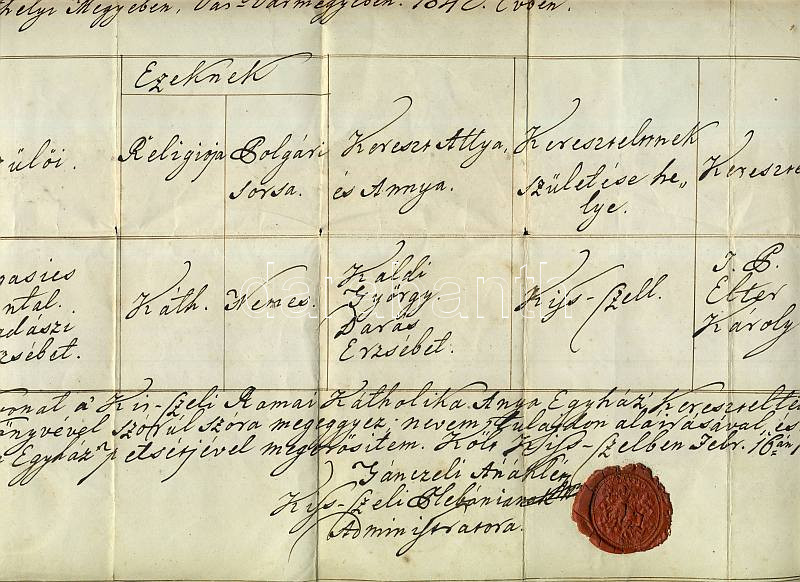 helyi Megyében, Vas Vármegyében. 184 . Évben.
Ezeknek
ülői.
Religioja
Polgári
sorsa.
Kereszt Attya,
és Annya.
Kereszteltnek
születése he„
lye.
Kereszte
gasics
ntal.
adászi
zsébet.
Káth.
Nemes.
Káldi
György.
Darás
Erzsébet.
Kiss-Czell.
T. P.
Elter
Károly
vonat a' Kis-Czeli Romai Katholika Anya Egyház' Keresztelte
önyvével szórúl szóra megeggyez; nevem' tulajdon aláirásával, és
Egyház' petsétjével megerősitem. Költ Kiss-Czelben Febr. 16án
Gánczeli
Kiss-Czeli Plebánia
Administratora.
darabanth